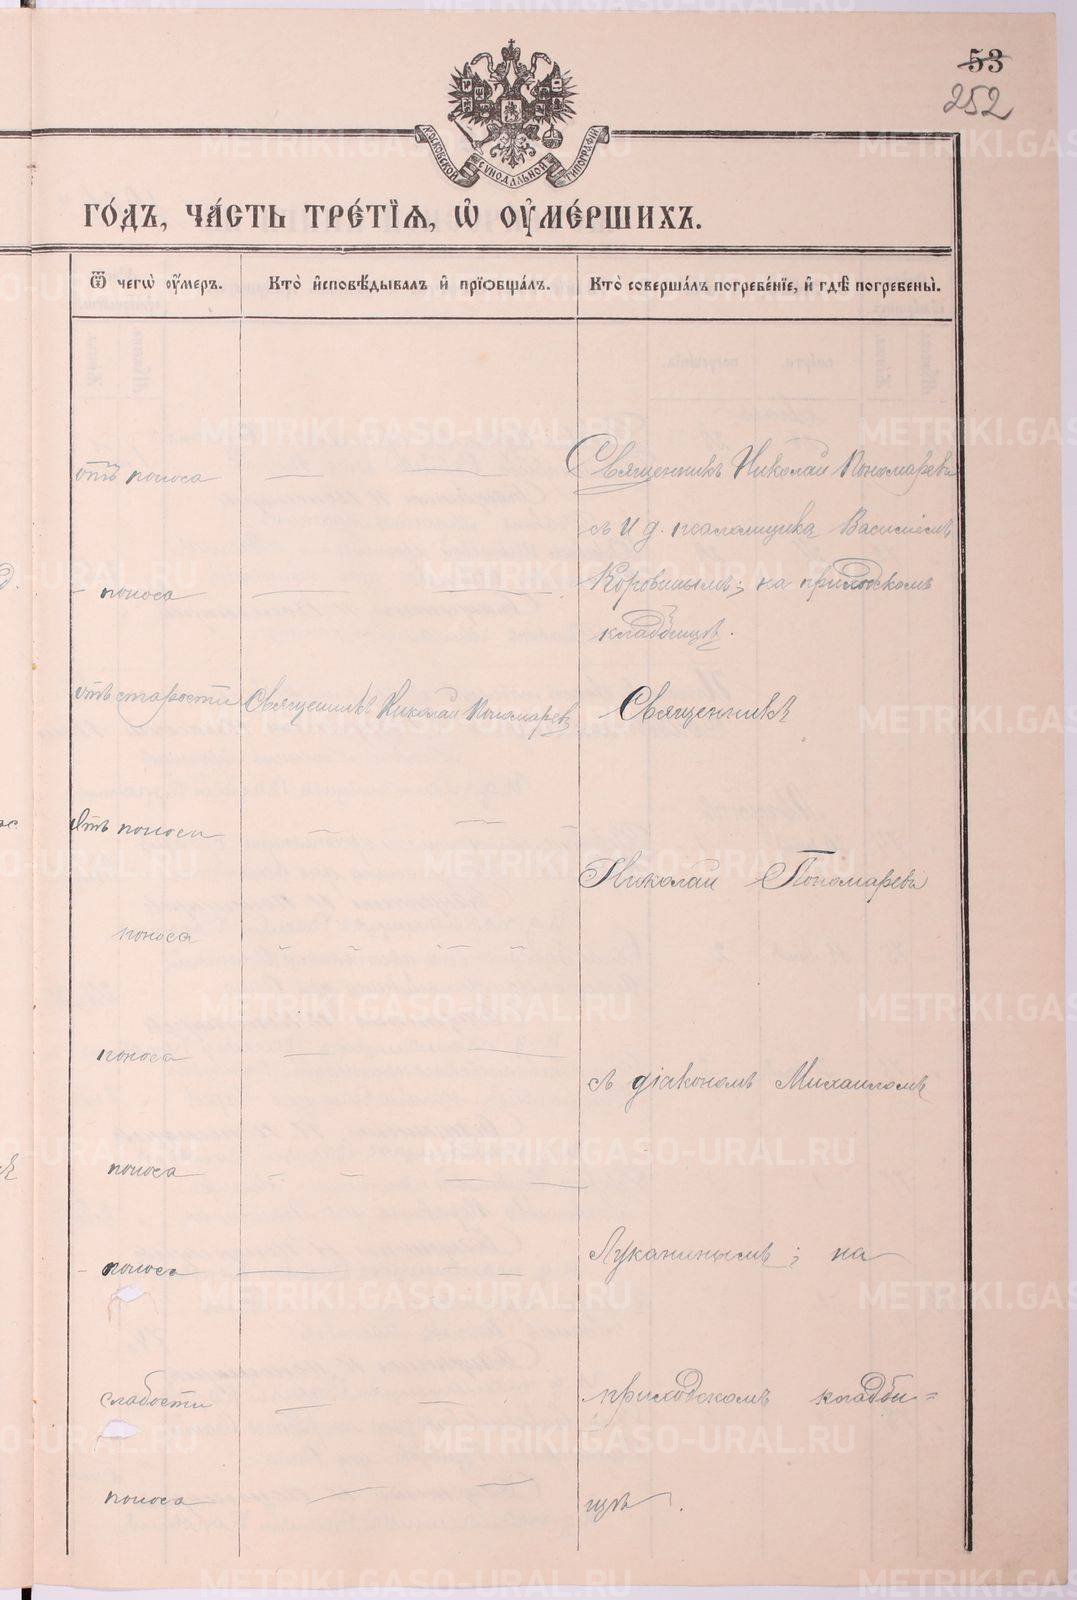 53
252
МОСКОВСКОЙ СУНОДАЛЬНОЙ ТИПОГРАФІИ
ГО́ДЪ, ЧА́СТЬ ТРЕ́ТІЯ, Ѡ҆ ОУ҆МЕ́РШИХЪ.
Ѿ чегѡ̀ оу҆́меръ.
Кто̀ и҆сповѣ́дывалъ и҆ прїѡбща́лъ.
Кто̀ соверша́лъ погребе́нїе, и҆ гдѣ̀ погребены̀.
отъ поноса — —
Священникъ Николай Пономаревъ
съ и д. псаломщика Василіемъ
– поноса — —
Коровинымъ; на приходскомъ
кладбищѣ.
отъ старости
Священникъ Николай Пономаревъ
Священникъ
Отъ поноса —
Николай Пономаревъ
поноса
поноса — —
съ діакономъ Михаиломъ
поноса — —
Луканинымъ; на
– поноса — —
слабости — —
приходскомъ кладби=
поноса — —
щѣ.
METRIKI.GASO-URAL.RU